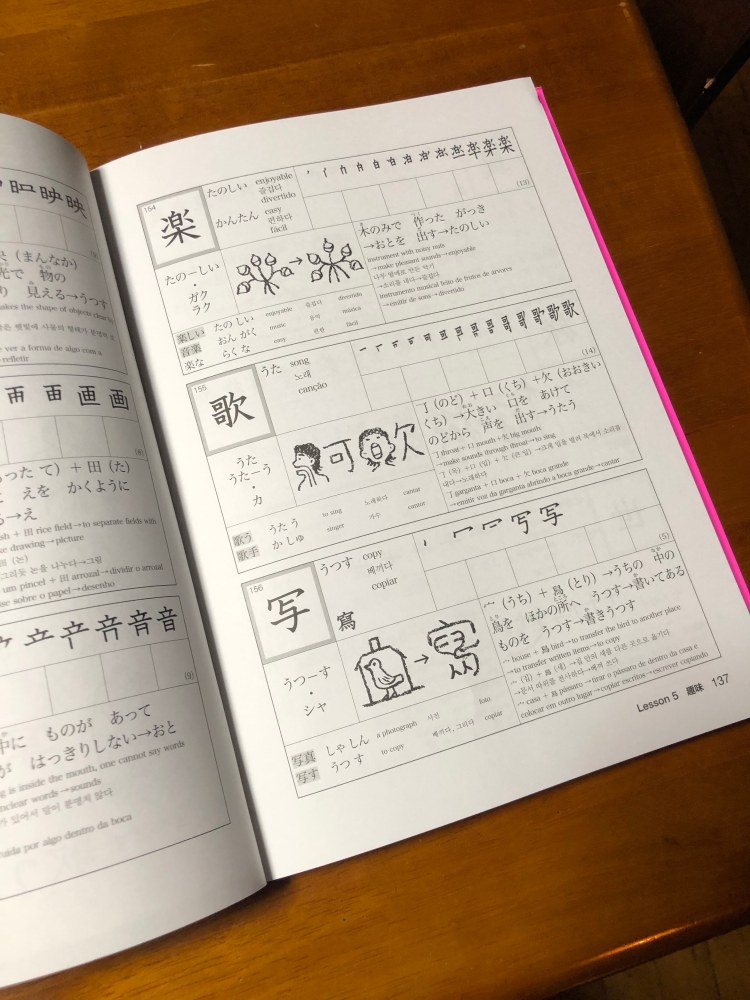 映映
(まんなか)
光で 物の
見える→うつす
makes the shape of objects close by
ver a forma de algo com a
refletir
画画
(6)
ったて) + 田 (た)
えを かくように
る→え
rice field→to separate fields with
drawing→picture
um pincel + 田 arrozal→dividir o arrozal
sobre o papel→desenho
音音
(9)
中に ものが あって
が はっきりしない→おと
is inside the mouth, one cannot say words
unclear words→sounds
por algo dentro da boca
154
楽
たのしい enjoyable
즐겁다
divertido
かんたん easy
편하다
fácil
楽楽
(13)
たの−しい
・
ガク
ラク
木のみで 作った がっき
→おとを 出す→たのしい
instrument with noisy nuts
→make pleasant sounds→enjoyable
나무 열매로 만든 악기
→소리를 내다→즐겁다
instrumento musical feito de frutos de árvores
→emitir de sons→divertido
楽しい たの しい enjoyable 즐겁다 divertido
音楽 おん がく music 음악 música
楽な らく な easy 편한 fácil
155
歌
うた song
노래
canção
歌歌
(14)
うた
うた−う
・
カ
可 欠
丁 (のど) + 口 (くち) +欠 (おおきい
くち) →大きい 口を あけて
のどから 声を 出す→うたう
丁 throat + 口 mouth +欠 big mouth
→make sounds through throat→to sing
내다→노래하다
丁 garganta + 口 boca + 欠 boca grande
→emitir voz da garganta abrindo a boca grande→cantar
歌う うた う to sing 노래하다 cantar
歌手 か しゅ singer 가수 cantor
156
写
うつす copy
베끼다
copiar
写写
(5)
寫
うつ−す
・
シャ
宀 (うち) + 鳥 (とり) →うちの 中の
鳥を ほかの所へ うつす→書いてある
ものを うつす→書きうつす
宀 house + 鳥 bird→to transfer the bird to another place
→to transfer written items→to copy
宀 casa + 鳥 pássaro→tirar o pássaro de dentro da casa e
colocar em outro lugar→copiar escritos→escrever copiando
写真 しゃ しん a photograph 사진 foto
写す うつ す to copy 베끼다, 그리다 copiar
Lesson 5 趣味 137